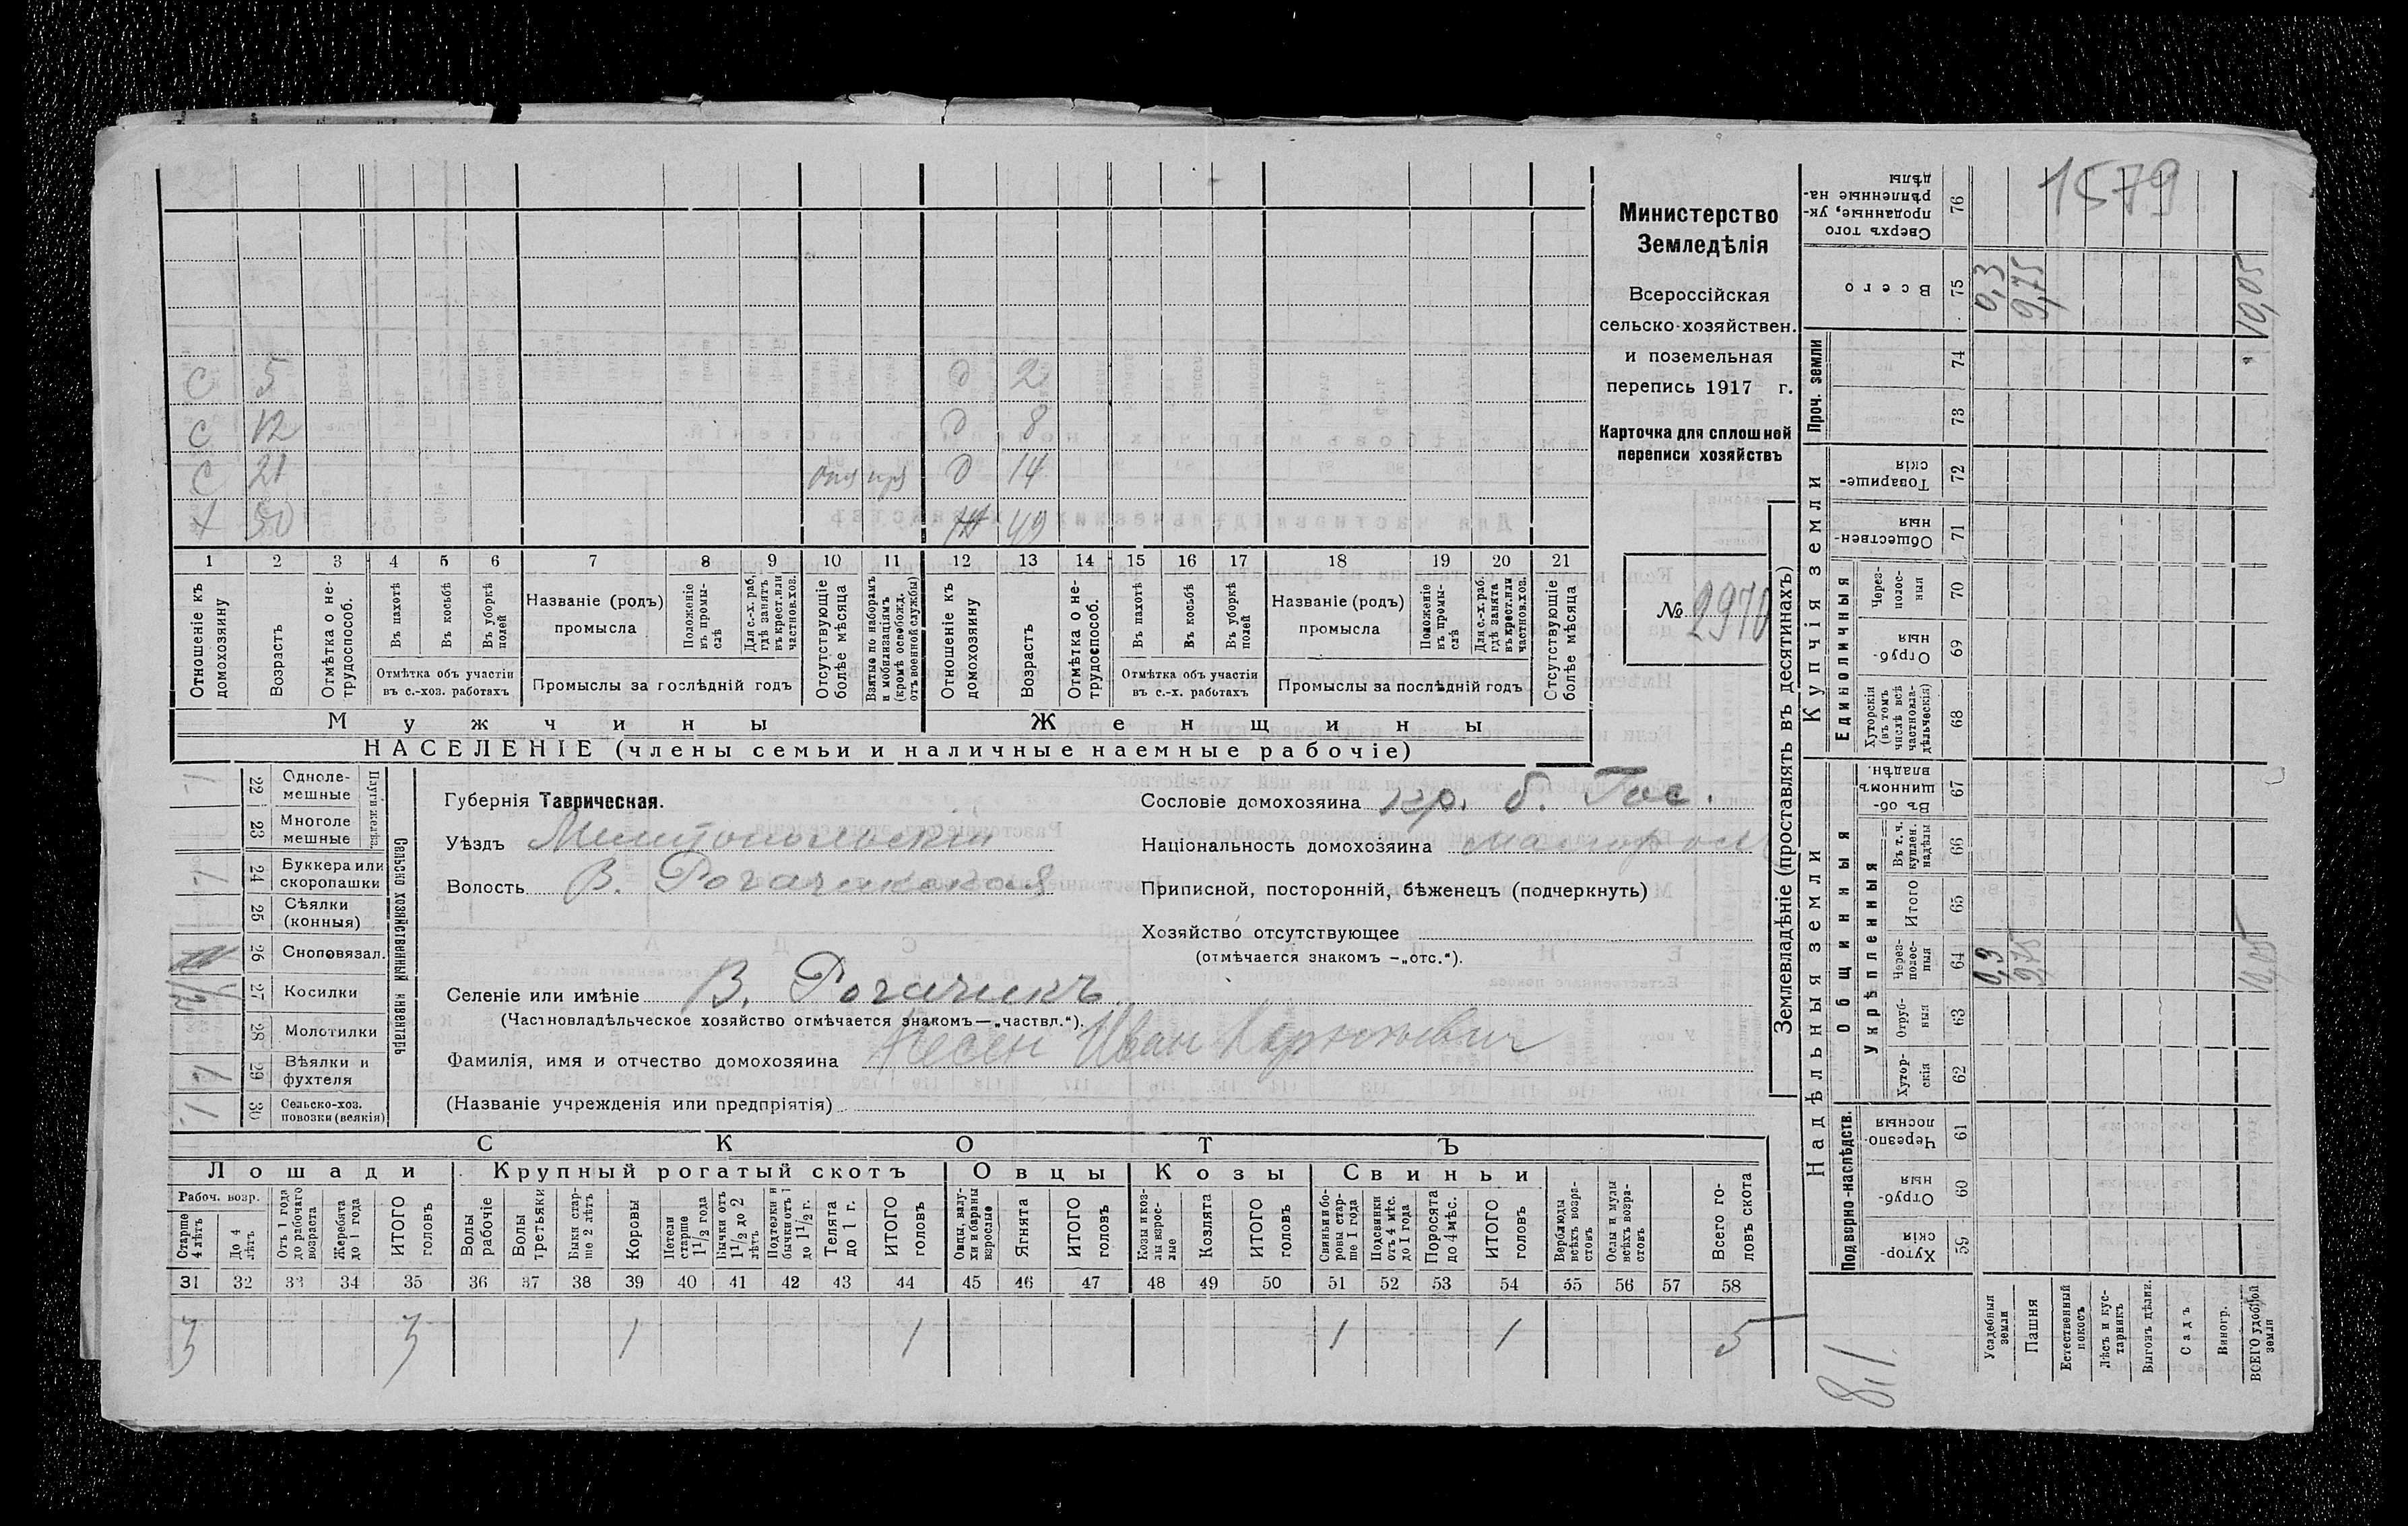 1579
Министерство
Земледѣлія
Всероссійская
сельско-хозяйствен.
и поземельная
перепись 1917 г.
Карточка для сплошной
переписи хозяйствъ
№ 2970
С 5 д 2
С 12 д 8
С 21 д 14
50 49
1 2 3 4 5 6 7 8 9 10 11 12 13 14 15 16 17 18 19 20 21
Отношеніе къ домохозяину
Возрастъ
Отмѣтка о не-трудоспособ.
Въ пахотѣ
Въ косьбѣ
Въ уборкѣ полей
Отмѣтка объ участіи
въ с.-хоз. работахъ
Названіе (родъ)
промысла
Положеніе въ промы-слѣ
Для с.-х. раб. гдѣ занятъ въ крест. или частновл. хоз.
Промыслы за послѣдній годъ
Отсутствующіе болѣе мѣсяца
Взятые по наборамъ и мобилизаціямъ (кромѣ освобожд. отъ военной службы)
Отношеніе къ домохозяину
Возрастъ
Отмѣтка о не-трудоспособ.
Въ пахотѣ
Въ косьбѣ
Въ уборкѣ полей
Отмѣтка объ участіи
въ с.-х. работахъ
Названіе (родъ)
промысла
Положеніе въ промы-слѣ
Для с.-х. раб. гдѣ занята въ крест. или частнов. хоз.
Промыслы за послѣдній годъ
Отсутствующіе болѣе мѣсяца
Мужчины Женщины
НАСЕЛЕНІЕ (члены семьи и наличные наемные рабочіе)
Сельско хозяйственный инвентарь
Плуги желѣз.
22 Одноле-мешные 1
23 Многоле мешные
24 Буккера или скоропашки 1
25 Сѣялки (конныя)
26 Сноповязал.
27 Косилки
28 Молотилки
29 Вѣялки и фухтеля 1
30 Сельско-хоз. повозки (всякія) 1
Губернія Таврическая.
Уѣздъ Мелитопольскій
Волость В. Рогачикская
Сословіе домохозяина кр. б. Гос.
Національность домохозяина малорос
Приписной, посторонній, бѣженецъ (подчеркнуть)
Хозяйство отсутствующее
(отмѣчается знакомъ —„отс.“).
Селеніе или имѣніе В. Рогачикъ
(Частновладѣльческое хозяйство отмѣчается знакомъ—„частвл.“).
Фамилія, имя и отчество домохозяина Иван
(Названіе учрежденія или предпріятія)
СКОТЪ
Лошади Крупный рогатый скотъ Овцы Козы Свиньи
Рабоч. возр.
Старше 4 лѣтъ
До 4 лѣтъ
Отъ 1 года до рабочаго возраста
Жеребята до 1 года
ИТОГО головъ
Волы рабочіе
Волы третьяки
Быки стар-ше 2 лѣтъ
Коровы
Нетели старше 1½ года
Бычки отъ 1½ до 2 лѣтъ
Подтелки и бычки отъ 1 до 1½ г.
Телята до 1 г.
ИТОГО головъ
Овцы, валу-хи и бараны взрослые
Ягнята
ИТОГО головъ
Козы и коз-лы взрос-лые
Козлята
ИТОГО головъ
Свиньи и бо-ровы стар-ше 1 года
Подсвинки отъ 4 мѣс. до 1 года
Поросята до 4 мѣс.
ИТОГО головъ
Верблюды всѣхъ возра-стовъ
Ослы и мулы всѣхъ возра-стовъ
Всего го-ловъ скота
31 32 33 34 35 36 37 38 39 40 41 42 43 44 45 46 47 48 49 50 51 52 53 54 55 56 57 58
3 3 1 1 1 1 5
Землевладѣніе (проставлять въ десятинахъ)
Надѣльныя земли Купчія земли Проч. земли
Подворно-наслѣдств.
Общинныя
Укрѣпленныя
Единоличныя
Хутор-скія 59
Отруб-ныя 60
Черезпо-лосныя 61
Хутор-скія 62
Отруб-ныя 63
Через-полос-ныя 64 10,05
Итого 65
Въ т. ч. куплен. надѣлы 66
Въ об-щинномъ владѣн. 67
Хуторскія (въ томъ числѣ всѣ частновла-дѣльческія) 68
Отруб-ныя 69
Через-полос-ныя 70
Обществен-ныя 71
Товарище-скія 72
73
74
Всего 75 0,3 9,75 10,05
Сверхъ того проданные, ук-рѣпленные на-дѣлы 76
Усадебныя земли
Пашня
Естественный покосъ
Лѣсъ и кус-тарникъ
Выгонъ дѣлин.
Садъ
Виногр.
ВСЕГО удобной земли